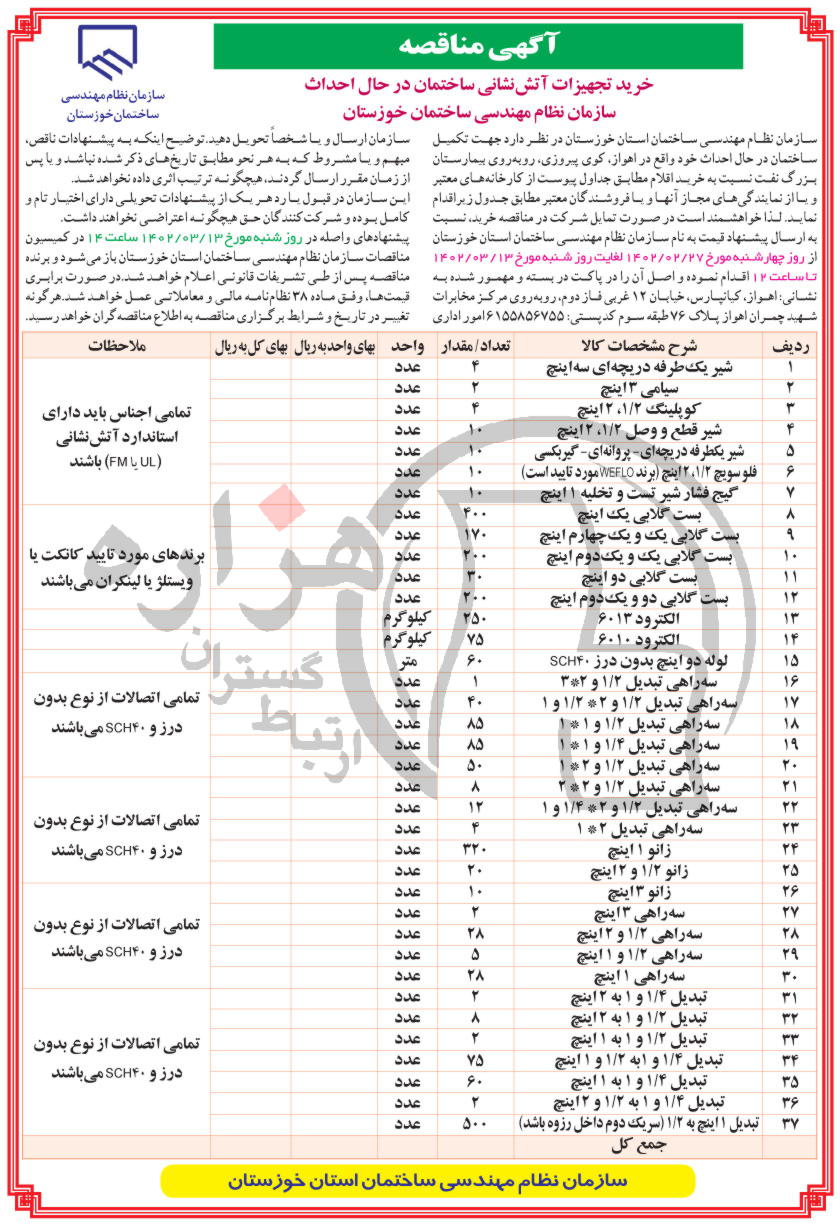 آگهی مناقصه
سازمان نظام مهندسی
ساختمان خوزستان
خرید تجهیزات آتش‌نشانی ساختمان در حال احداث
سازمان نظام مهندسی ساختمان خوزستان
سازمان نظام مهندسی ساختمان استان خوزستان در نظر دارد جهت تکمیل
ساختمان در حال احداث خود واقع در اهواز، کوی پیروزی، روبه‌روی بیمارستان
بزرگ نفت نسبت به خرید اقلام مطابق جداول پیوست از کارخانه‌های معتبر
و یا از نمایندگی‌های مجاز آنها و یا فروشندگان معتبر مطابق جدول زیر اقدام
نماید. لذا خواهشمند است در صورت تمایل شرکت در مناقصه خرید، نسبت
به ارسال پیشنهاد قیمت به نام سازمان نظام مهندسی ساختمان استان خوزستان
از روز چهارشنبه مورخ ۱۴۰۲/۰۲/۲۷ لغایت روز شنبه مورخ ۱۴۰۲/۰۳/۱۳
تا ساعت ۱۲ اقدام نموده و اصل آن را در پاکت در بسته و مهمور شده به
نشانی: اهواز، کیانپارس، خیابان ۱۲ غربی فاز دوم، روبه‌روی مرکز مخابرات
شهید چمران اهواز پلاک ۷۶ طبقه سوم کدپستی: ۶۱۵۵۸۵۶۷۵۵ امور اداری
سازمان ارسال و یا شخصاً تحویل دهید. توضیح اینکه به پیشنهادات ناقص،
مبهم و یا مشروط که به هر نحو مطابق تاریخ‌های ذکر شده نباشد و یا پس
از زمان مقرر ارسال گردند، هیچگونه ترتیب اثری داده نخواهد شد.
این سازمان در قبول یا رد هر یک از پیشنهادات تحویلی دارای اختیار تام و
کامل بوده و شرکت کنندگان حق هیچگونه اعتراضی نخواهند داشت.
پیشنهادهای واصله در روز شنبه مورخ ۱۴۰۲/۰۳/۱۳ ساعت ۱۴ در کمیسیون
مناقصات سازمان نظام مهندسی ساختمان استان خوزستان باز می‌شود و برنده
مناقصه پس از طی تشریفات قانونی اعلام خواهد شد. در صورت برابری
قیمت‌ها، وفق ماده ۳۸ نظام‌نامه مالی و معاملاتی عمل خواهد شد. هرگونه
تغییر در تاریخ و شرایط برگزاری مناقصه به اطلاع مناقصه گران خواهد رسید.
ردیف شرح مشخصات کالا تعداد/مقدار واحد بهای واحد به ریال بهای کل به ریال ملاحظات
۱ شیر یک‌طرفه دریچه‌ای سه اینچ ۴ عدد
۲ سیامی ۳ اینچ ۲ عدد
۳ کوپلینگ ۱/۲، ۲ اینچ ۴ عدد
۴ شیر قطع و وصل ۱/۲، ۲ اینچ ۱۰ عدد
۵ شیر یکطرفه دریچه‌ای- پروانه‌ای- گیربکسی ۱۰ عدد
۶ فلو سویچ ۱/۲، ۲ اینچ (برند WEFLO مورد تایید است) ۱۰ عدد
۷ گیج فشار شیر تست و تخلیه ۱ اینچ ۱۰ عدد
تمامی اجناس باید دارای
استاندارد آتش‌نشانی
(UL یا FM) باشند
۸ بست گلابی یک اینچ ۴۰۰ عدد
۹ بست گلابی یک و یک‌چهارم اینچ ۱۷۰ عدد
۱۰ بست گلابی یک و یک‌دوم اینچ ۲۰۰ عدد
۱۱ بست گلابی دو اینچ ۳۰ عدد
۱۲ بست گلابی دو و یک‌دوم اینچ ۲۰۰ عدد
۱۳ الکترود ۶۰۱۳ ۲۵۰ کیلوگرم
۱۴ الکترود ۶۰۱۰ ۷۵ کیلوگرم
برندهای مورد تایید کانکت یا
ویستلژ یا لینکران می‌باشند
۱۵ لوله دو اینچ بدون درز SCH۴۰ ۶۰ متر
۱۶ سه‌راهی تبدیل ۱/۲ و ۲*۳ ۱ عدد
۱۷ سه‌راهی تبدیل ۱/۲ و ۲ * ۱/۲ و ۱ ۴۰ عدد
۱۸ سه‌راهی تبدیل ۱/۲ و ۱ * ۱ ۸۵ عدد
۱۹ سه‌راهی تبدیل ۱/۴ و ۱ * ۱ ۸۵ عدد
۲۰ سه‌راهی تبدیل ۱/۲ و ۲ * ۱ ۵۰ عدد
تمامی اتصالات از نوع بدون
درز و SCH۴۰ می‌باشند
۲۱ سه‌راهی تبدیل ۱/۲ و ۲ * ۲ ۸ عدد
۲۲ سه‌راهی تبدیل ۱/۲ و ۲ * ۱/۴ و ۱ ۱۲ عدد
۲۳ سه‌راهی تبدیل ۲ * ۱ ۴ عدد
۲۴ زانو ۱ اینچ ۳۲۰ عدد
۲۵ زانو ۱/۲ و ۲ اینچ ۲۰ عدد
تمامی اتصالات از نوع بدون
درز و SCH۴۰ می‌باشند
۲۶ زانو ۳ اینچ ۱۰ عدد
۲۷ سه‌راهی ۳ اینچ ۲ عدد
۲۸ سه‌راهی ۱/۲ و ۲ اینچ ۲۸ عدد
۲۹ سه‌راهی ۱/۲ و ۱ اینچ ۵ عدد
۳۰ سه‌راهی ۱ اینچ ۲۸ عدد
تمامی اتصالات از نوع بدون
درز و SCH۴۰ می‌باشند
۳۱ تبدیل ۱/۴ و ۱ به ۲ اینچ ۲ عدد
۳۲ تبدیل ۱/۲ و ۱ به ۲ اینچ ۸ عدد
۳۳ تبدیل ۱/۲ و ۱ به ۱ اینچ ۲ عدد
۳۴ تبدیل ۱/۴ و ۱ به ۱/۲ و ۱ اینچ ۷۵ عدد
۳۵ تبدیل ۱/۴ و ۱ به ۱ اینچ ۶۰ عدد
۳۶ تبدیل ۱/۴ و ۱ به ۱/۲ و ۲ اینچ ۲ عدد
۳۷ تبدیل ۱ اینچ به ۱/۲ (سر یک دوم داخل رزوه باشد) ۵۰۰ عدد
تمامی اتصالات از نوع بدون
درز و SCH۴۰ می‌باشند
جمع کل
سازمان نظام مهندسی ساختمان استان خوزستان
هزاره
گستران
ارتباط